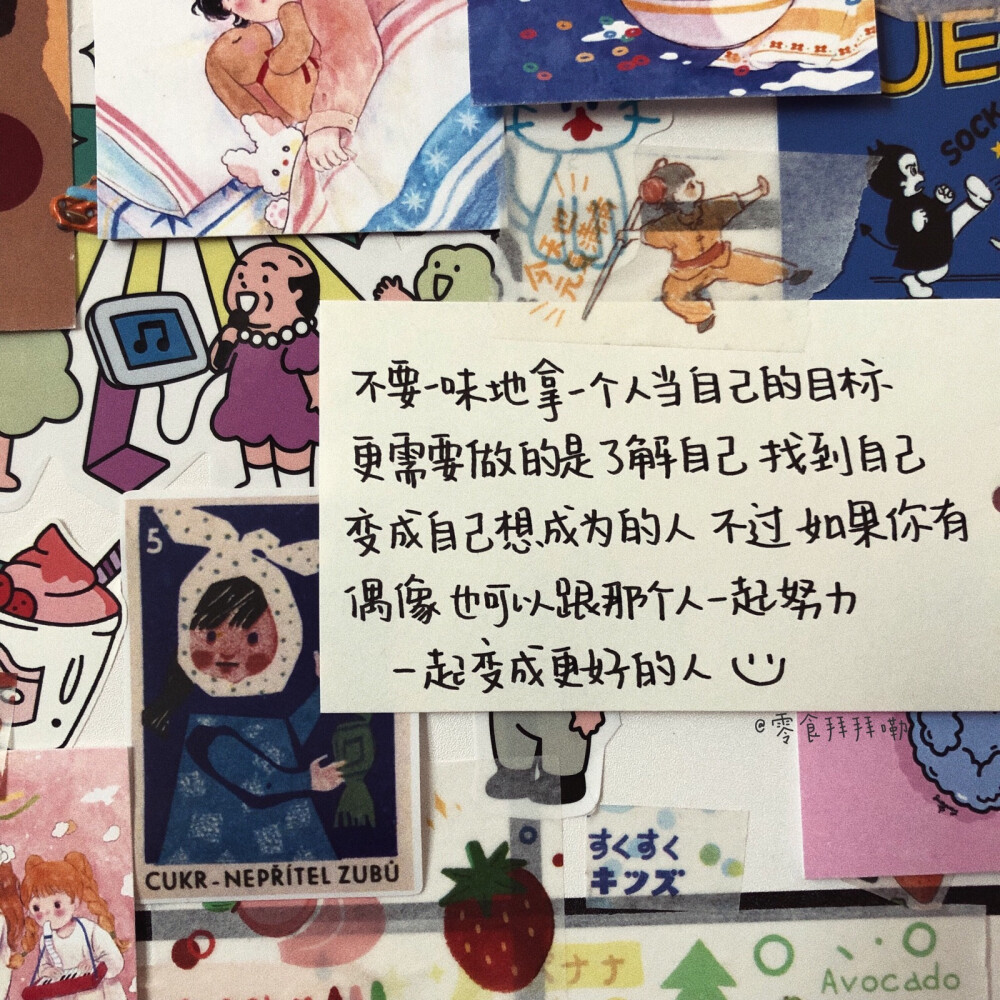 SOCK
今天也
元气满满
不要一味地拿一个人当自己的目标
更需要做的是了解自己 找到自己
变成自己想成为的人 不过 如果你有
偶像 也可以跟那个人一起努力
一起变成更好的人
@零食拜拜嘞
5
CUKR-NEPŘÍTEL ZUBŮ
すくすく
キッズ
バナナ
Avocado